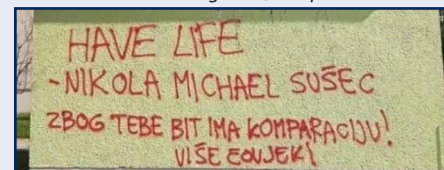 HAVE LIFE
-NIKOLA MICHAEL SUŠEC
ZBOG TEBE BIT IMA KOMPARACIJU!
VIŠE